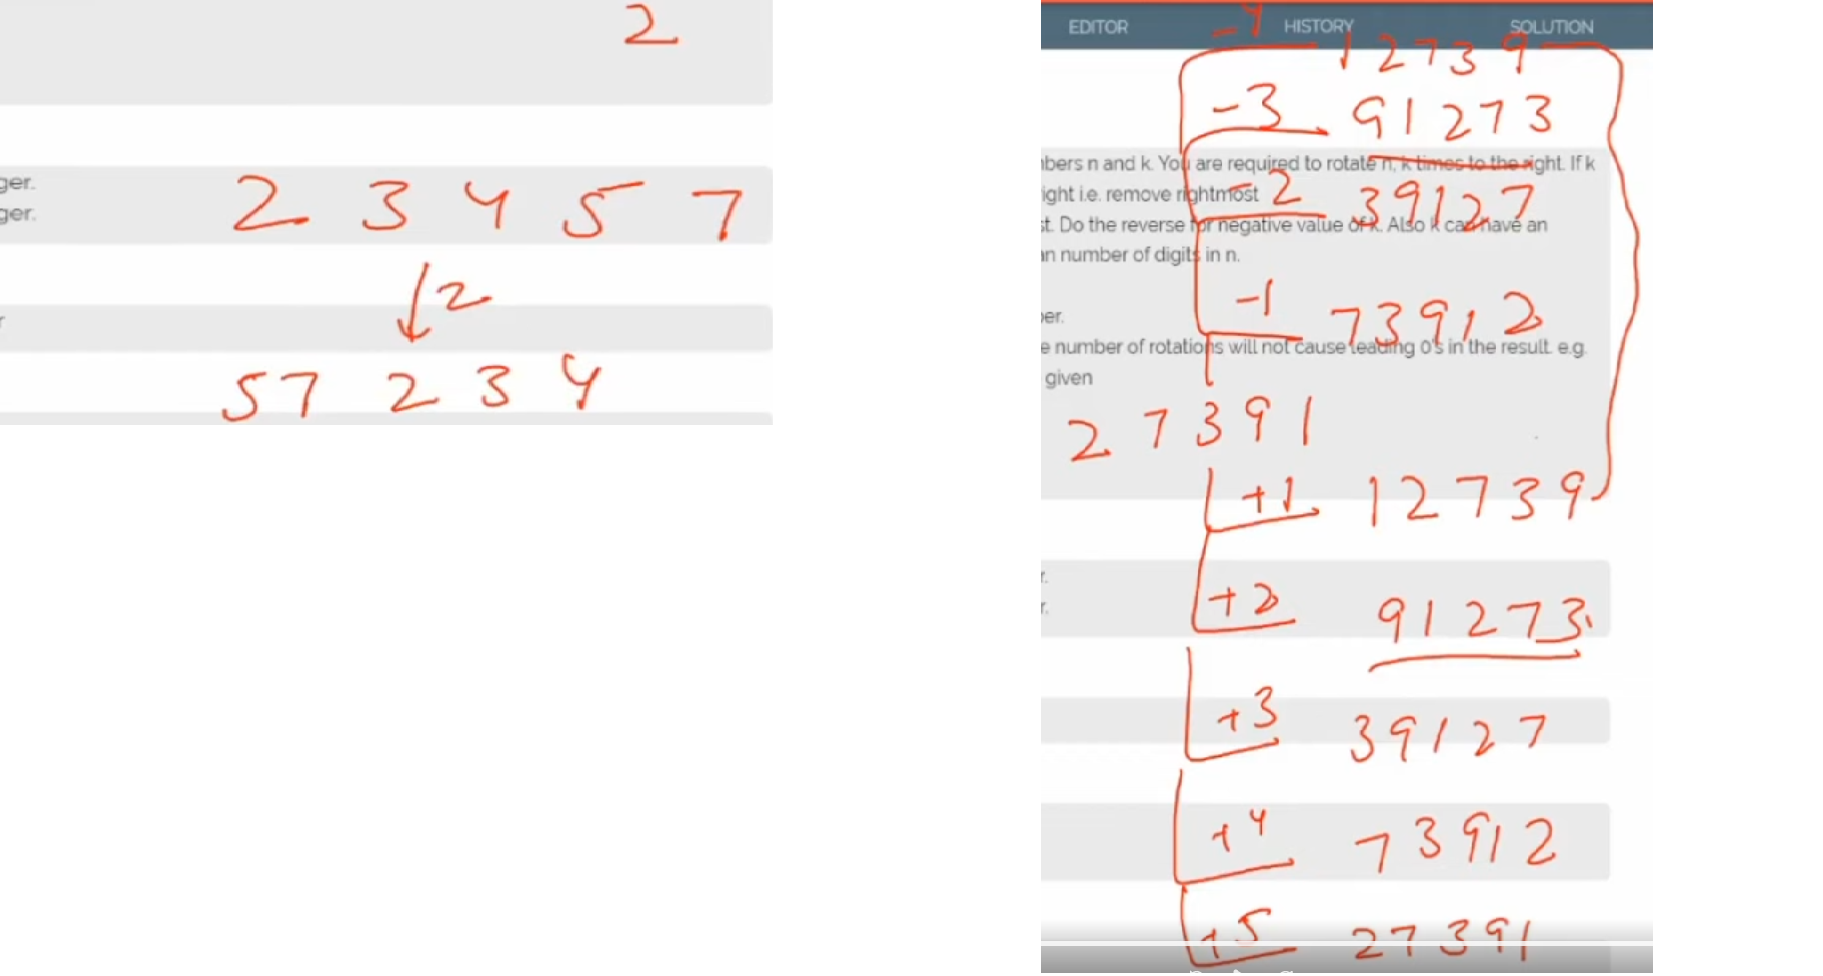 2
ger.
ger.
2 3 4 5 7
2
r
57 2 3 4
EDITOR HISTORY SOLUTION
-4 12739
-3 91273
nbers n and k. You are required to rotate n, k times to the right. If k
ight i.e. remove rightmost
-2 39127
st. Do the reverse for negative value of k. Also k can have an
an number of digits in n.
-1 73912
ber.
e number of rotations will not cause leading 0's in the result. e.g.
given
2 7 3 9 1
+1 12739
r.
+2 91273
r.
+3 39127
+4 73912
+5 27391